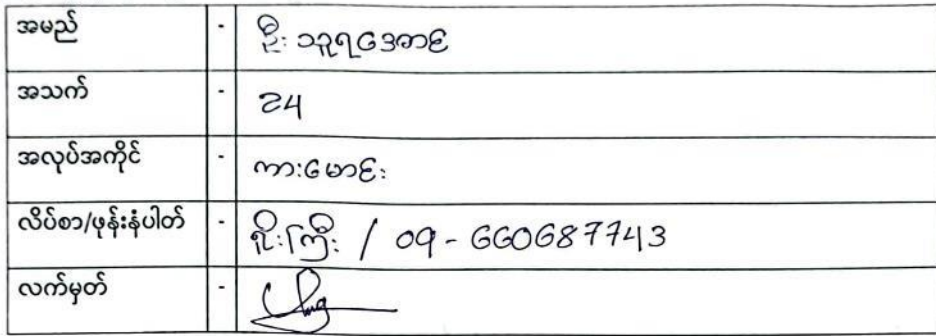 အမည် - ဦးသူရအောင်
အသက် - 24
အလုပ်အကိုင် - ကားမောင်း
လိပ်စာ/ဖုန်းနံပါတ် - ရိုးကြီး / 09-660687743
လက်မှတ် -